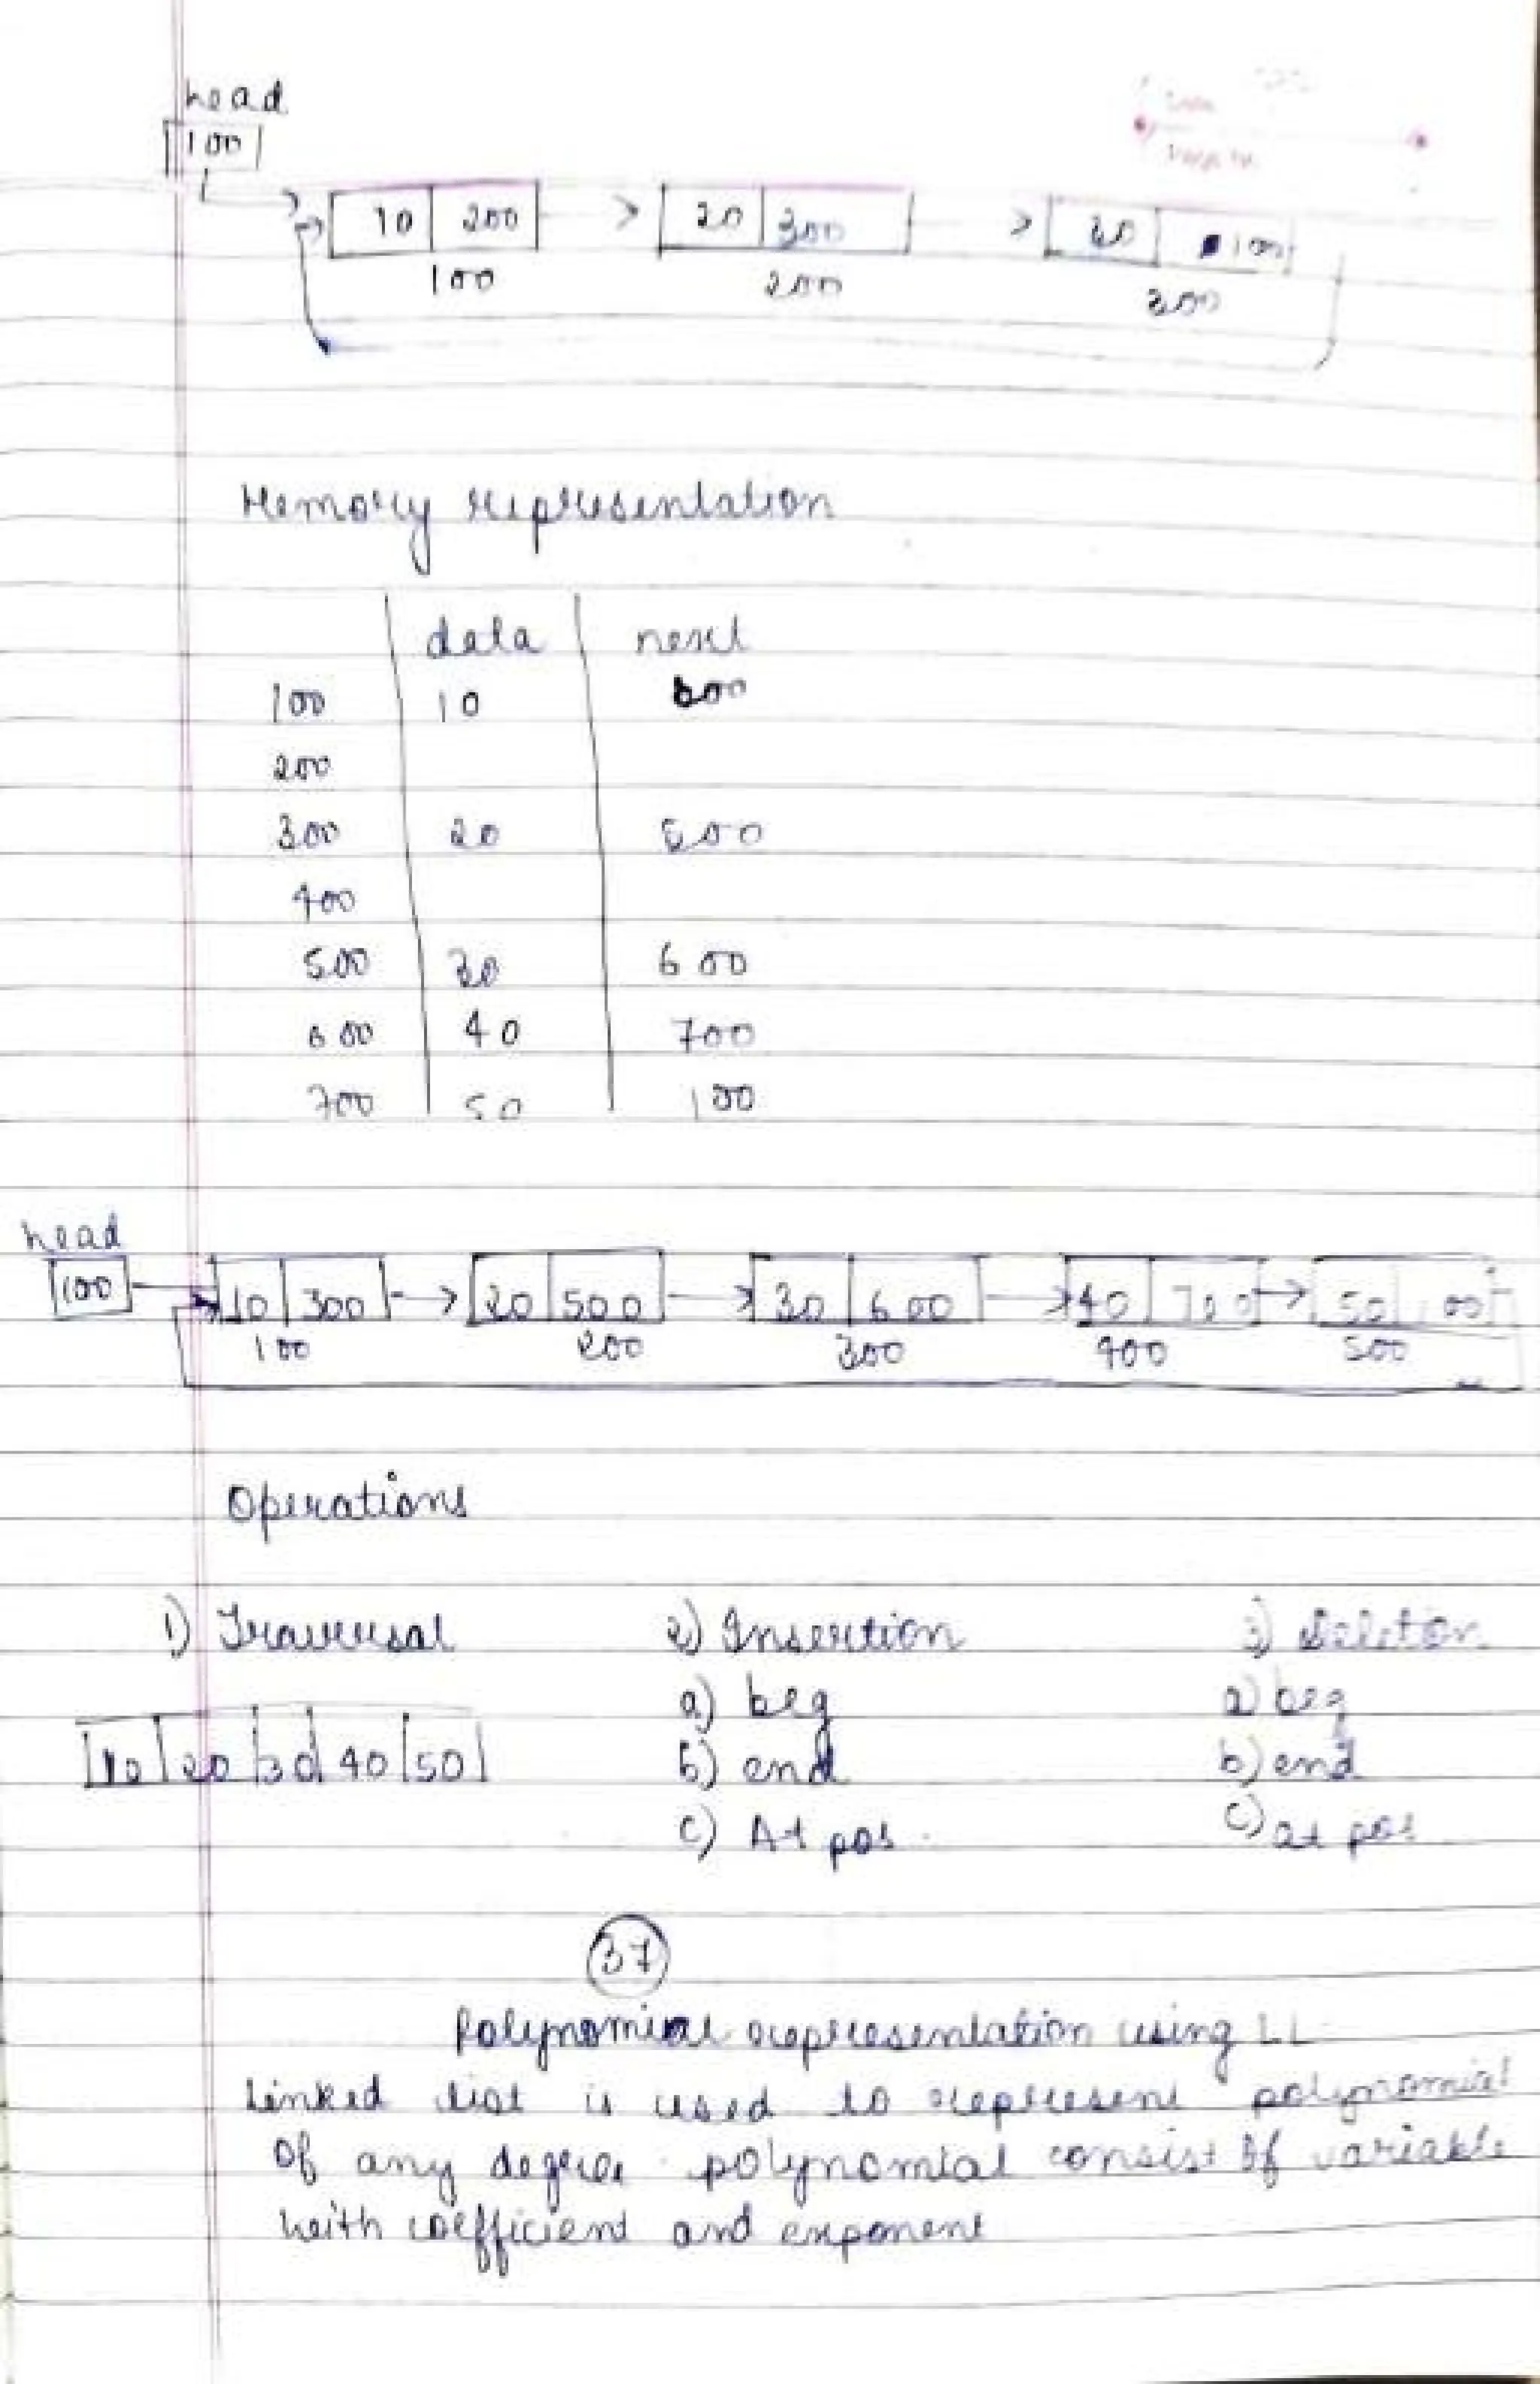 head
100
10 200 20 300 30 100
100 200 300
Memory representation
data next
100 10
200
300 20 500
400
500 30 600
600 40 700
700 50 100
head
100 10 300 20 500 30 600 40 700 50 100
100 200 300 400 500
Operations
1) Traversal 2) Insertion 3) Deleton
a) beg a) beg
10 20 30 40 50 b) end b) end
c) At pos c) at pos
37
Polynomial representation using LL
Linked list is used to represent polynomial
of any degree polynomial consist of variable
with coefficient and exponent